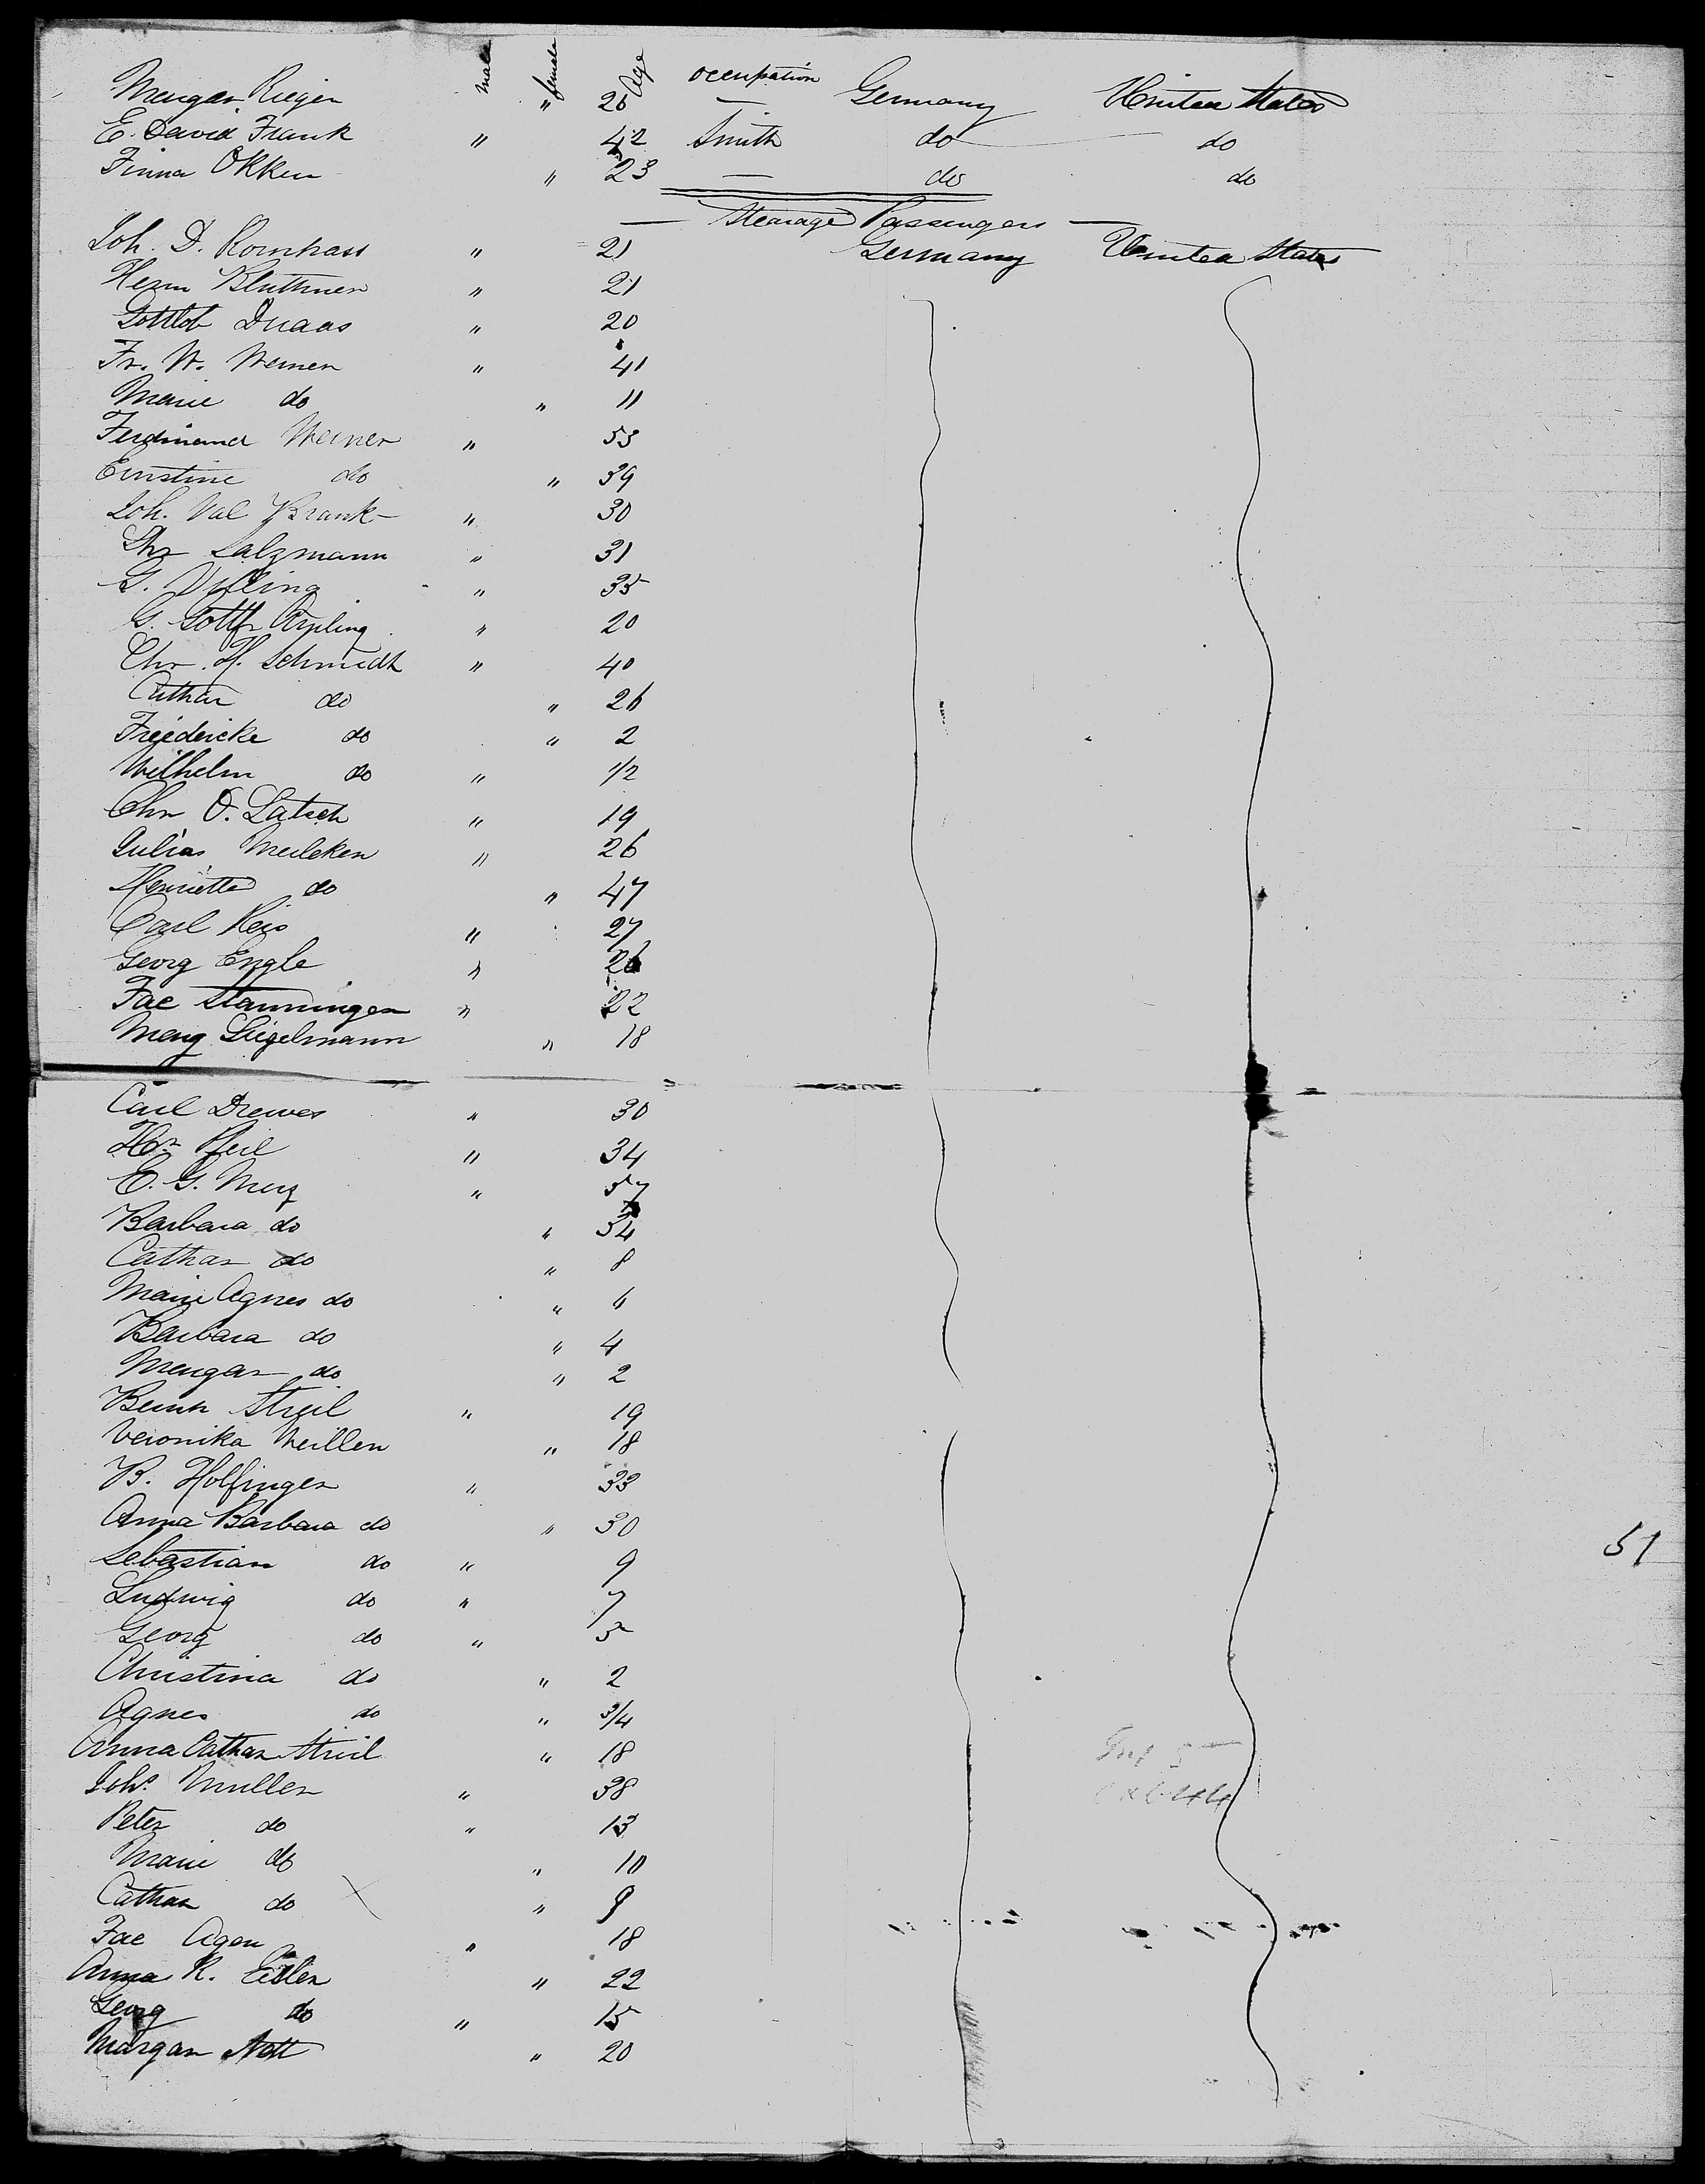 male female Age occupation
Margar Rieger " 26 — Germany United States
E. David Frank " 42 Smith do do
Finna Okken " 23 — do do
— Stearage Passengers —
Joh. D. Kornhass " 21 Germany United States
Herm Bluthner " 21
Gottlob Duaas " 20
Fr. W. Werner " 41
Marie do " 11
Ferdinand Werner " 53
Ernstine do " 39
Joh. Val Krank " 30
Chr Salzmann " 31
G. " 35
G. Gottfr " 20
Chr. H. Schmidt " 40
Cathar do " 26
Friedericke do " 2
Wilhelm do " 1/2
Chr O. Latsch " 19
Julias Meileken " 26
Henriette do " 47
Carl Reis " 27
Georg Engle " 26
Jac Stanninger " 22
Marg Siegelmann " 18
Carl Drewes " 30
Hr Pfeil " 34
E. G. Merz " 37
Barbara do " 34
Cathar do " 8
Marie Agnes do " 6
Barbara do " 4
Margar do " 2
Bernh Streil " 19
Veronika Weillen " 18
B. Holfinger " 33
Anna Barbara do " 30
Sebastian do " 9
Ludwig do " 7
Georg do " 5
Christina do " 2
Agnes do " 3/4
51
Anna Cathar Streil " 18
Johs Muller " 38
Peter do " 13
Marie do " 10
Cathar do " 9
Jac Agen " 18
Anna R. Eisler " 22
Georg do " 15
Margar Nott " 20